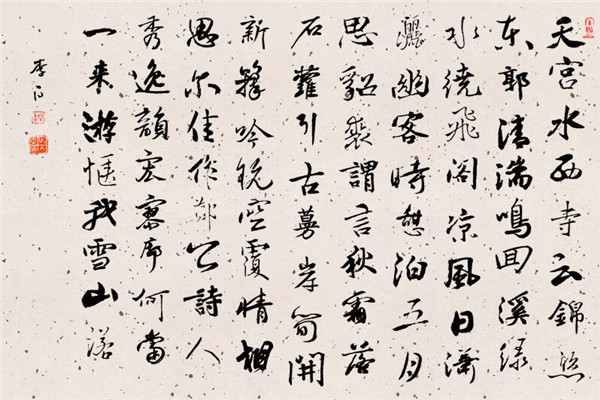 天宮水西寺云錦照
东郭清湍鳴回溪绿
水繞飛阁凉風日潇
灑幽客時憩泊五月
思貂裘謂言秋霜落
石蘿引古蔓岸筍開
新籜吟翫空復情相
思尔佳作鄭公詩人
秀逸韻宏寥廓何當
一来游愜我雪山诺
李白